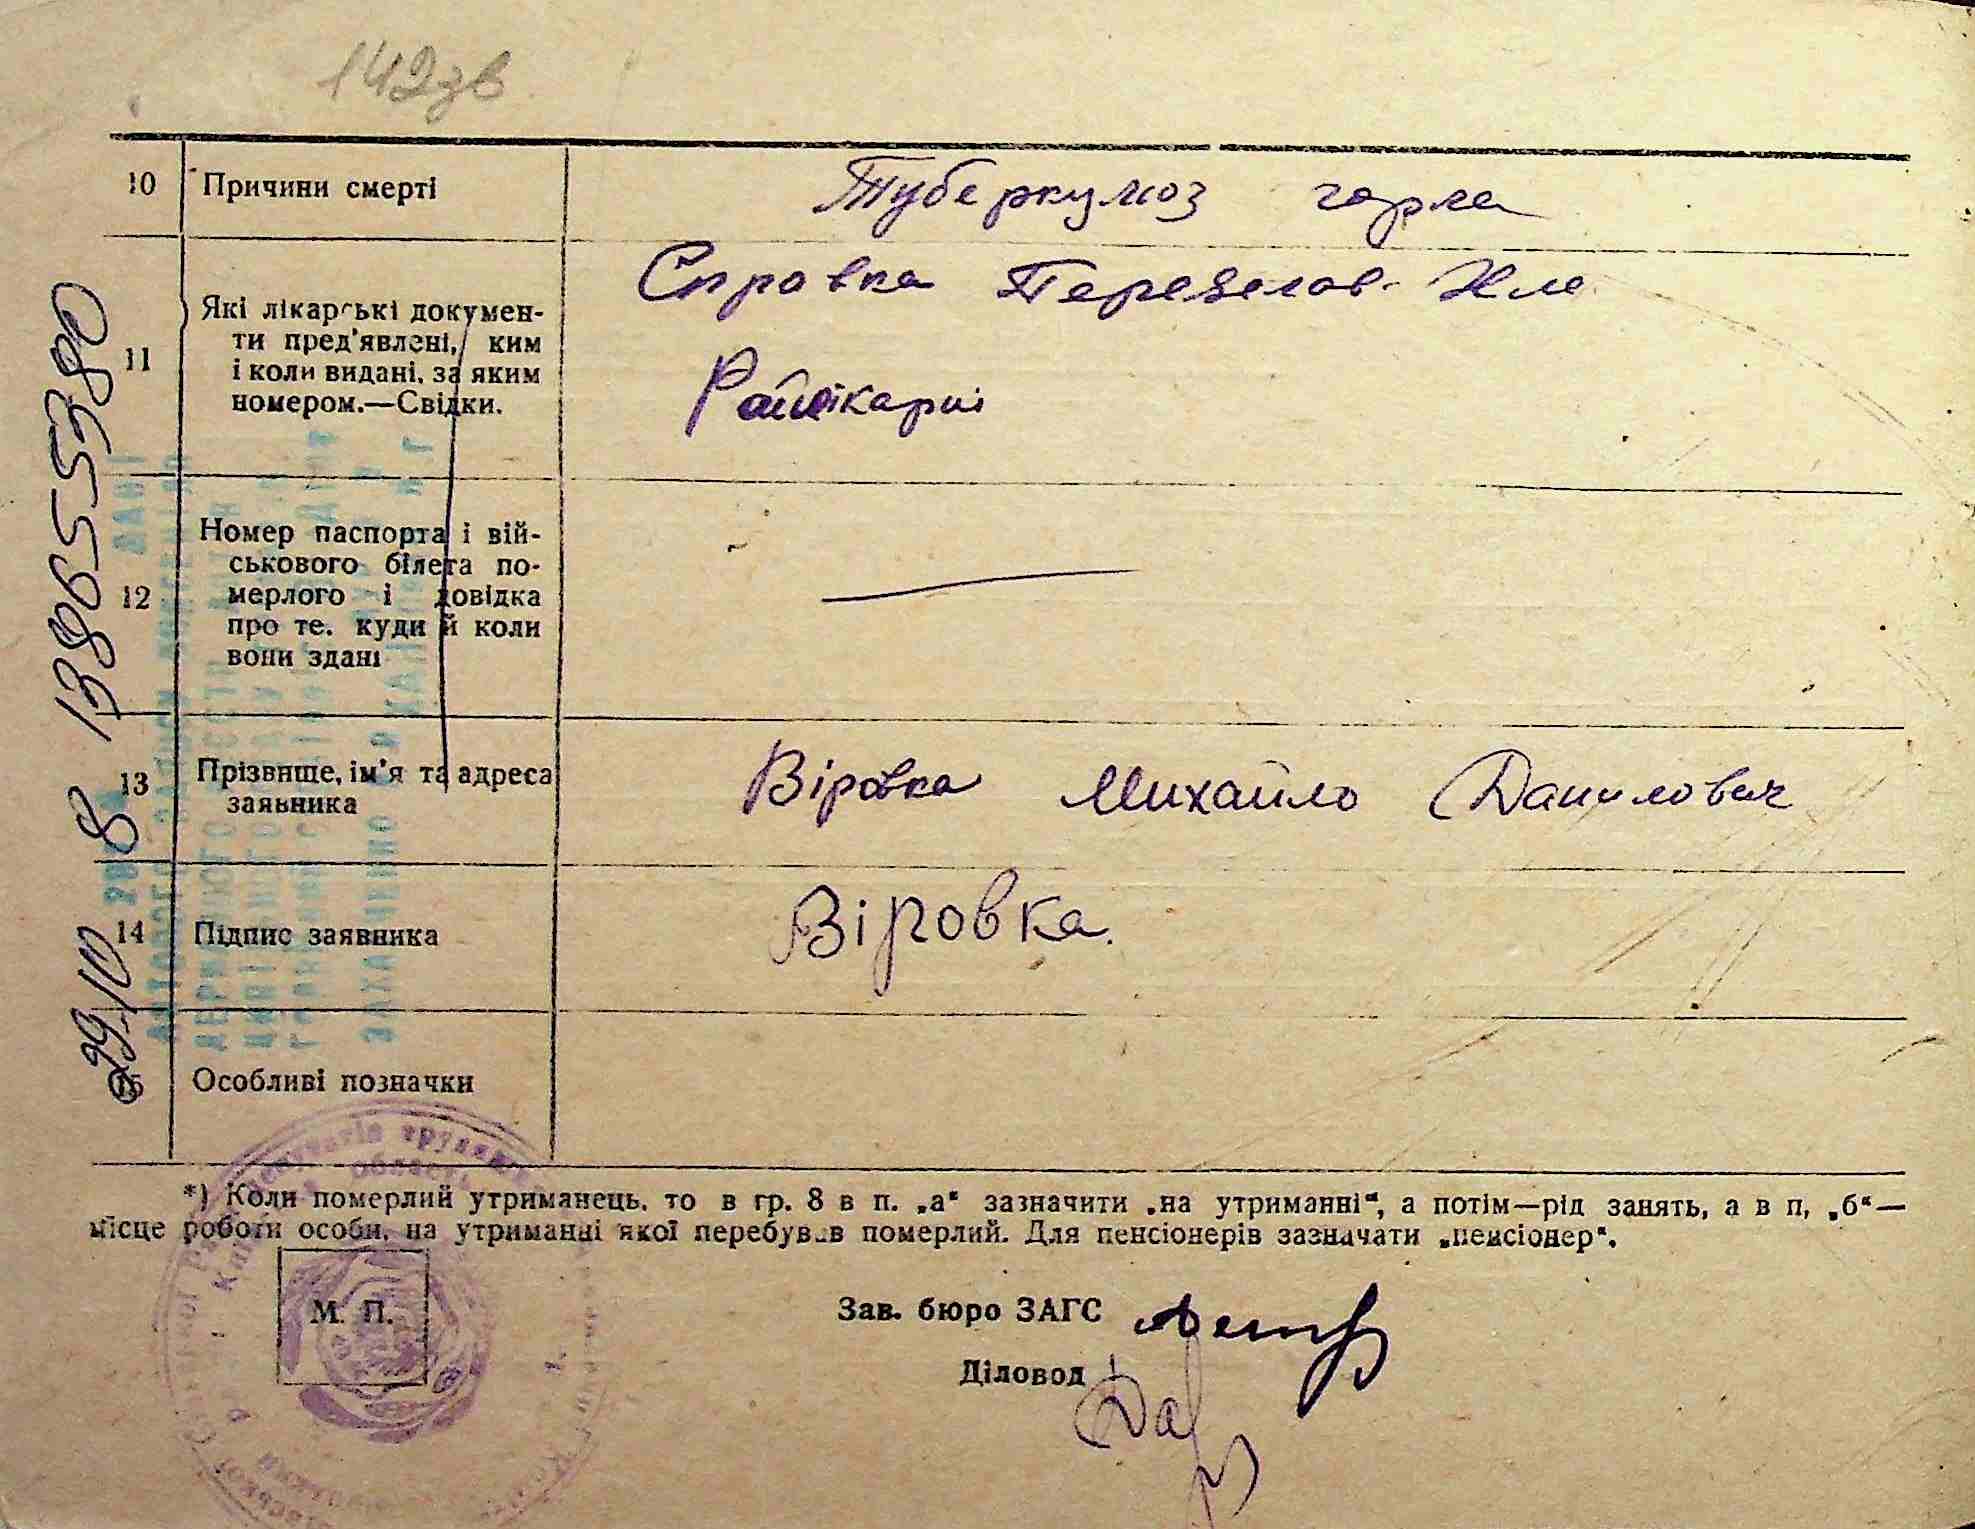 142зв
10 Причини смерті Туберкульоз горла
11 Які лікарські докумен-
ти пред'явлені, ким
і коли видані, за яким
номером.—Свідки.
Справка
Райлікарні
12 Номер паспорта і вій-
ськового білета по-
мерлого і довідка
про те. куди й коли
вони здані
13 Прізвище, ім'я та адреса
заявника
Віровка Михайло Данилович
14 Підпис заявника Віровка.
15 Особливі позначки
*) Коли померлий утриманець, то в гр. 8 в п. „а“ зазначити „на утриманні“, а потім—рід занять, а в п, „б“—
місце роботи особи, на утриманні якої перебував померлий. Для пенсіонерів зазначати „пенсіонер“.
М. П.
Зав. бюро ЗАГС
Діловод
29/10 8 138655380